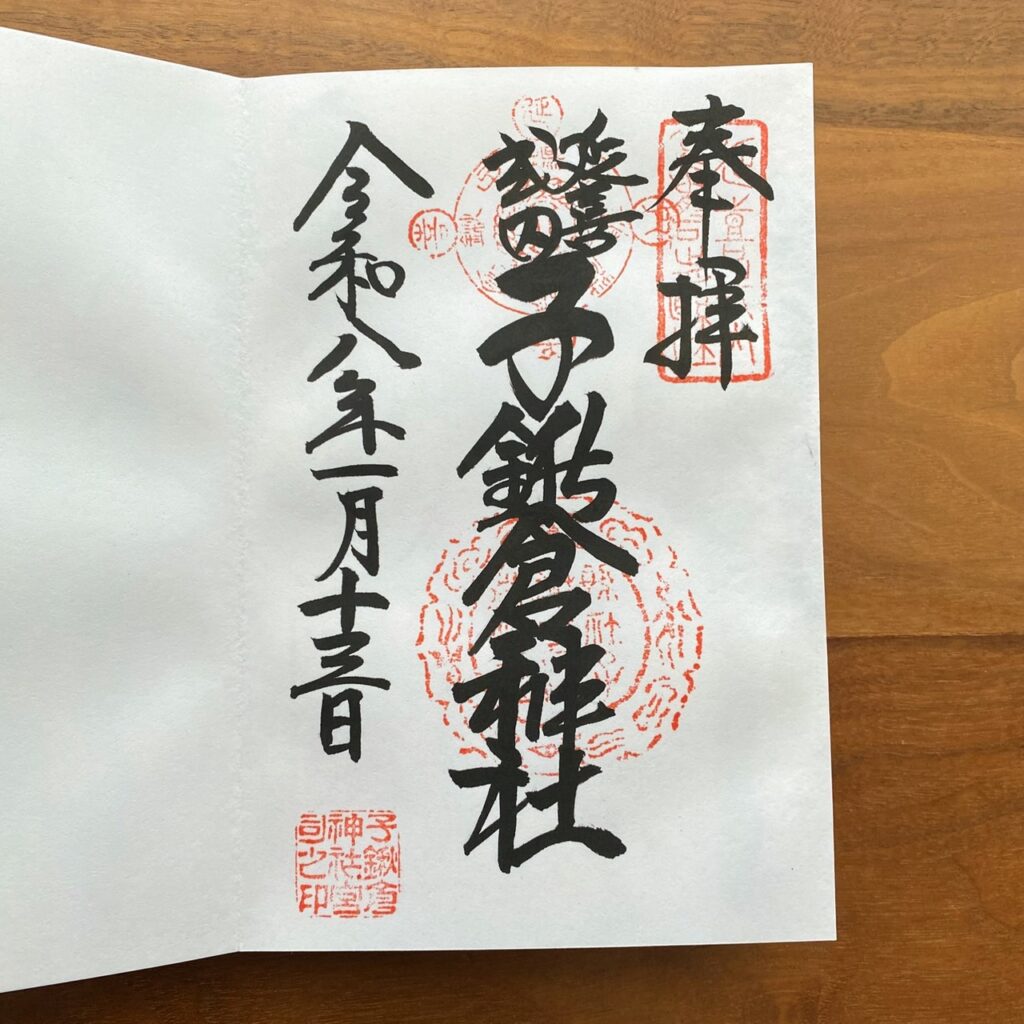 奉拝
延喜
式内
子鍬倉神社
令和八年一月十三日
子鍬倉
神社宮
司之印